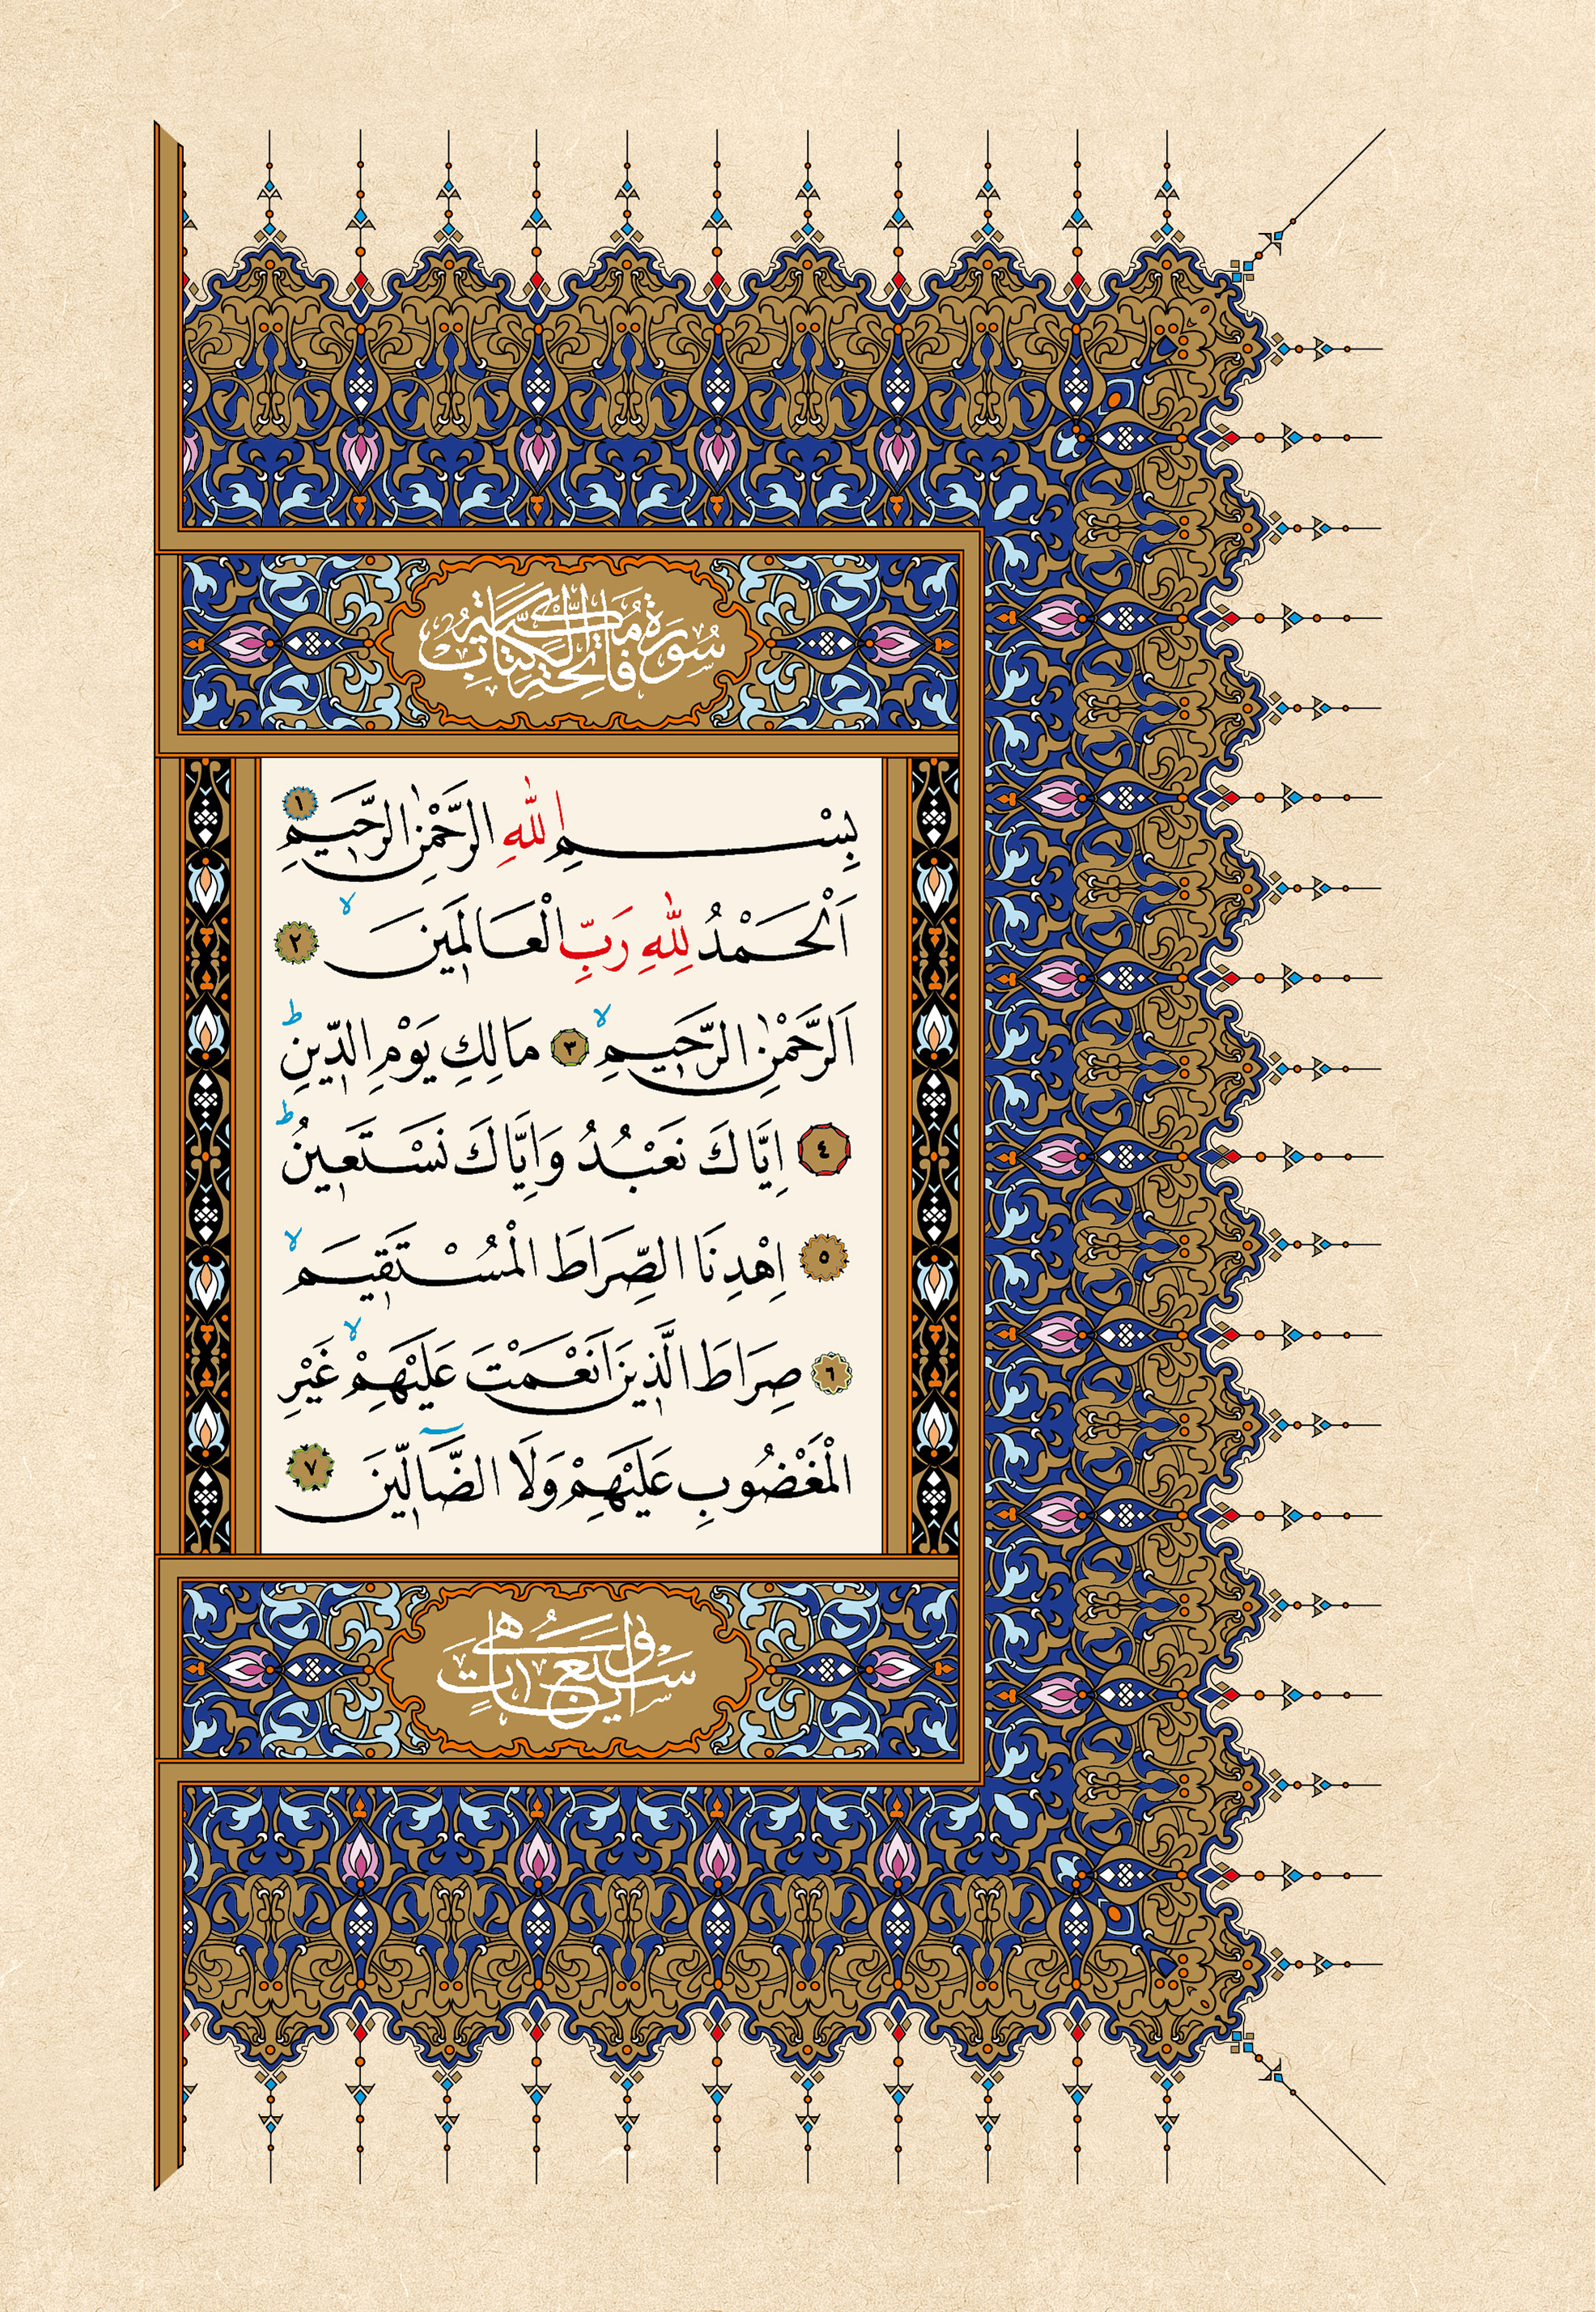 سُورَةُ فَاتِحَةِ الْكِتَابِ مَكِّيَّةٌ
بِسْمِ اللّٰهِ الرَّحْمٰنِ الرَّحِيمِ ١
اَلْحَمْدُ لِلّٰهِ رَبِّ الْعَالَمِينَ ۙ ٢
اَلرَّحْمٰنِ الرَّحِيمِ ۙ ٣ مَالِكِ يَوْمِ الدِّينِ ؕ
٤ اِيَّاكَ نَعْبُدُ وَاِيَّاكَ نَسْتَعِينُ ؕ
٥ اِهْدِنَا الصِّرَاطَ الْمُسْتَقِيمَ ۙ
٦ صِرَاطَ الَّذِينَ اَنْعَمْتَ عَلَيْهِمْ ۙ غَيْرِ
الْمَغْضُوبِ عَلَيْهِمْ وَلَا الضَّٓالِّينَ ٧
وَهِيَ سَبْعُ اٰيَاتٍ